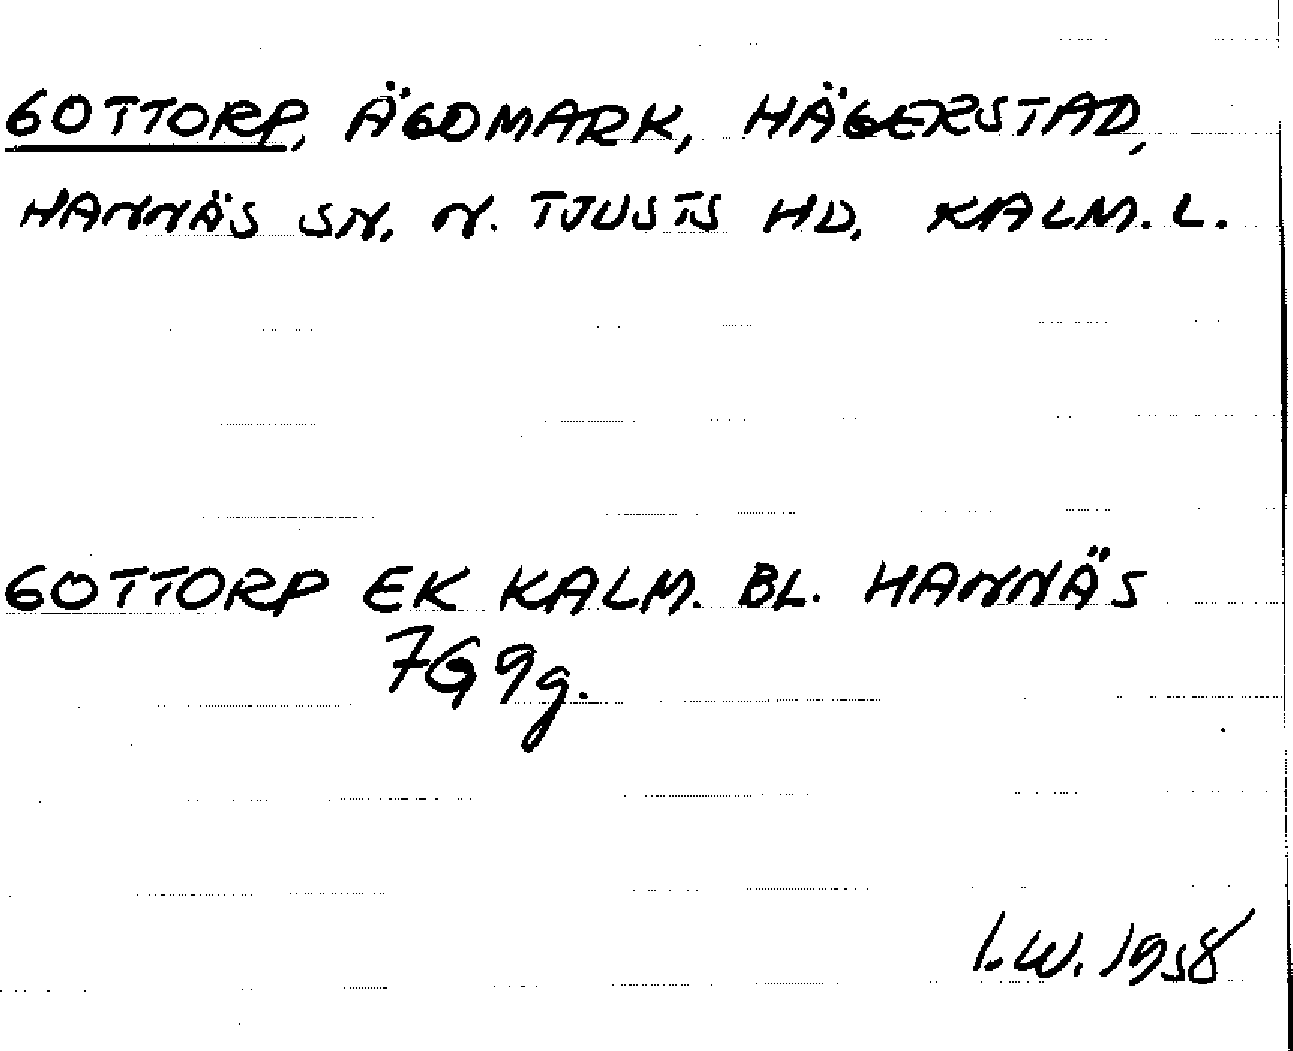 GOTTORP, ÄGOMARK, HÄGERSTAD,
HANNÄS SN, N. TJUSTS HD, KALM. L.
GOTTORP EK KALM. BL. HANNÄS
7G9g.
I.W. 1958